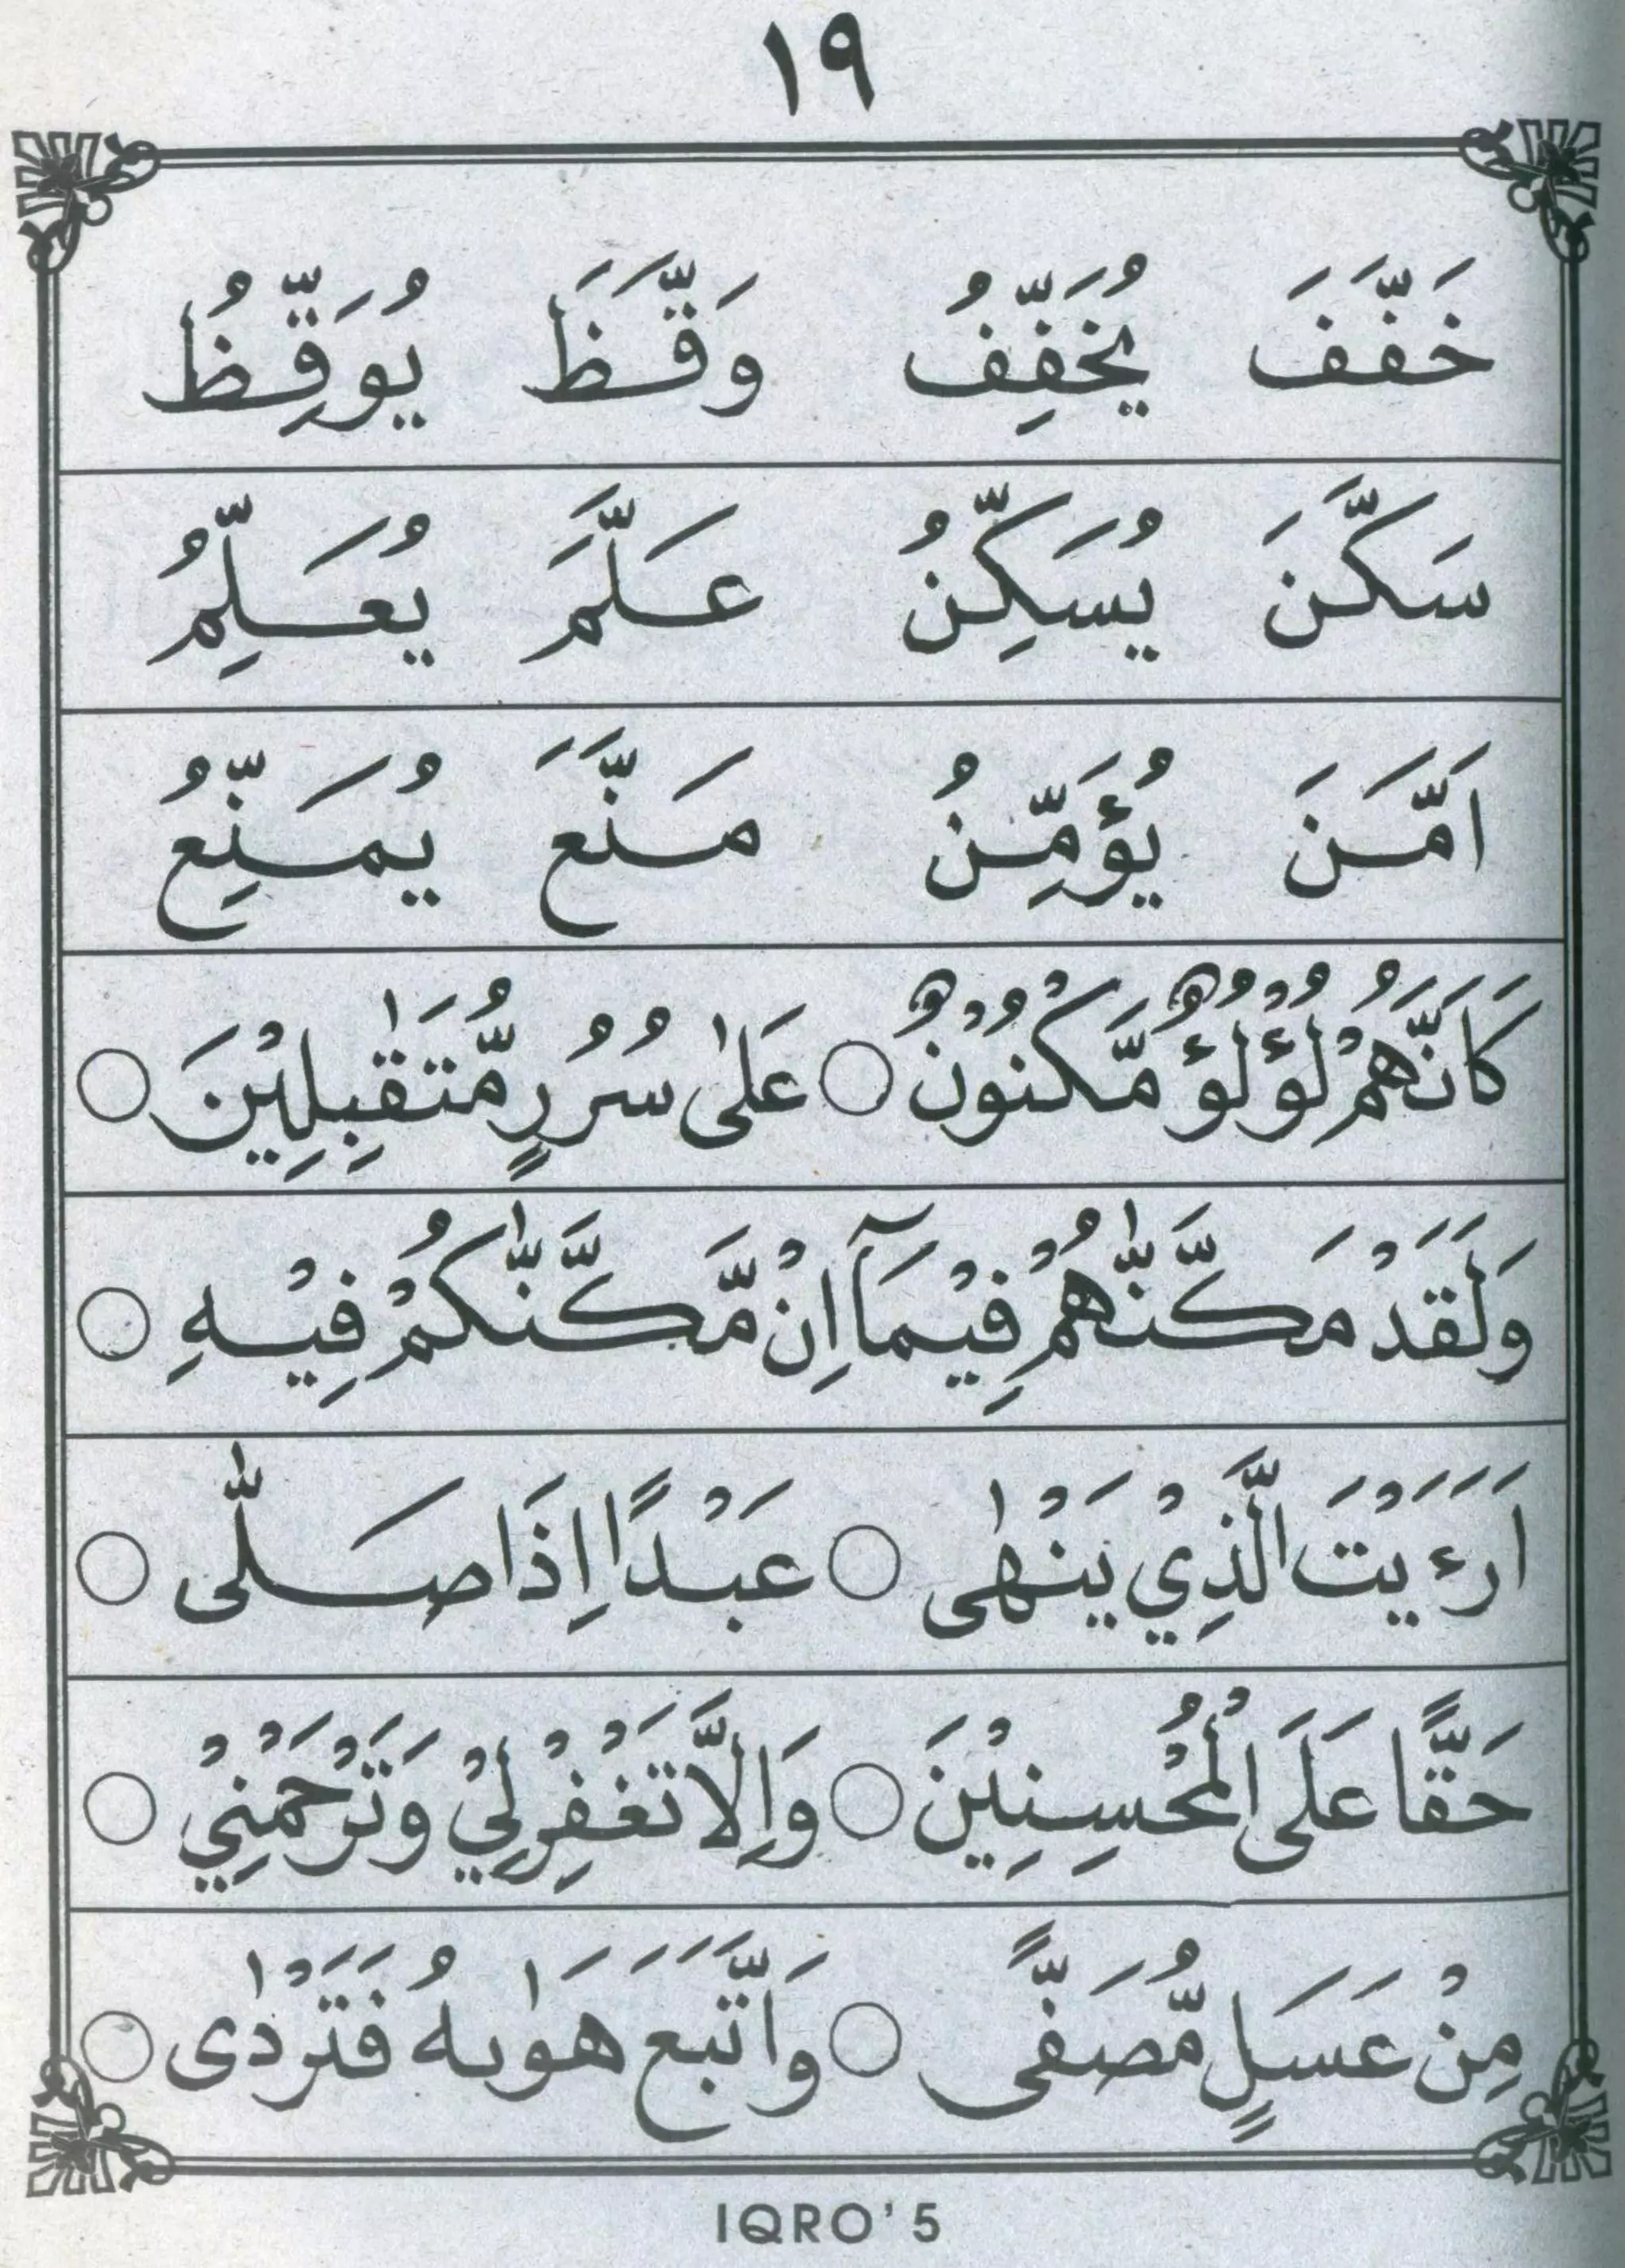 ١٩
خَفَّفَ يُخَفِّفُ وَقَّظَ يُوَقِّظُ
سَكَّنَ يُسَكِّنُ عَلَّمَ يُعَلِّمُ
اَمَّنَ يُؤَمِّنُ مَنَّعَ يُمَنِّعُ
كَاَنَّهُمْ لُؤْلُؤٌ مَّكْنُوْنٌ ○ عَلٰى سُرُرٍ مُّتَقٰبِلِيْنَ ○
وَلَقَدْ مَكَّنّٰهُمْ فِيْمَآ اِنْ مَّكَّنّٰكُمْ فِيْهِ ○
اَرَءَيْتَ الَّذِيْ يَنْهٰى ○ عَبْدًا اِذَا صَلّٰى ○
حَقًّا عَلَى الْمُحْسِنِيْنَ ○ وَاِلَّا تَغْفِرْلِيْ وَتَرْحَمْنِيْ ○
مِنْ عَسَلٍ مُّصَفًّى ○ وَاتَّبَعَ هَوٰىهُ فَتَرْدٰى ○
IQRO' 5